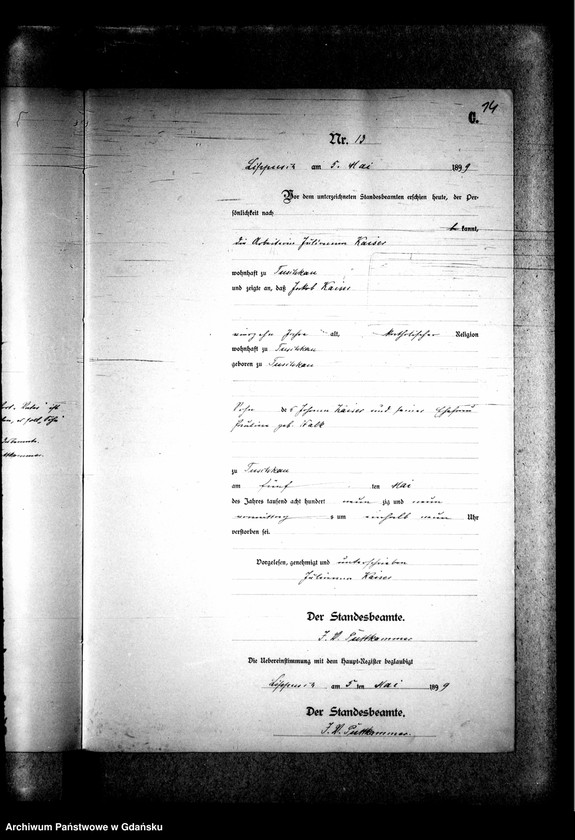 14
C.
Nr. 13
am 5. Mai 1899
Vor dem unterzeichneten Standesbeamten erschien heute, der Per-
sönlichkeit nach
be kannt,
die Arbeiterin Julianna Kaiser
wohnhaft zu
und zeigte an, daß Jakob Kaiser
vierzehn Jahre alt, katholischer Religion
wohnhaft zu
geboren zu
Sohn des Johann Kaiser und seiner Ehefrau
Paulina geb.
zu
am fünf ten Mai
des Jahres tausend acht hundert neun zig und neun
vormittag s um einhalb neun Uhr
verstorben sei.
Vorgelesen, genehmigt und unterschrieben
Julianna Kaiser
Der Standesbeamte.
Puttkammer
Die Uebereinstimmung mit dem Haupt-Register beglaubigt
am 5 ten Mai 1899
Der Standesbeamte.
Puttkammer.
Archiwum Państwowe w Gdańsku